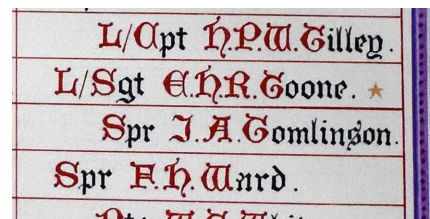 L/Cpt H.P.W. Tilley.
L/Sgt E.H.R. Toone.
Spr J.A. Tomlinson.
Spr F.H. Ward.